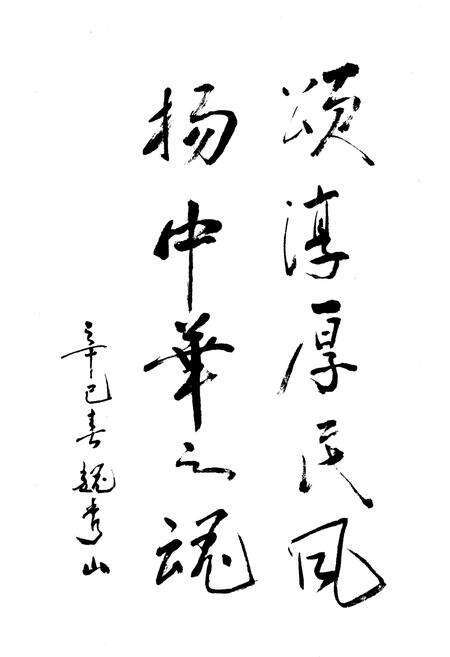 颂淳厚民风
扬中華之魂
辛巳春魏秀山